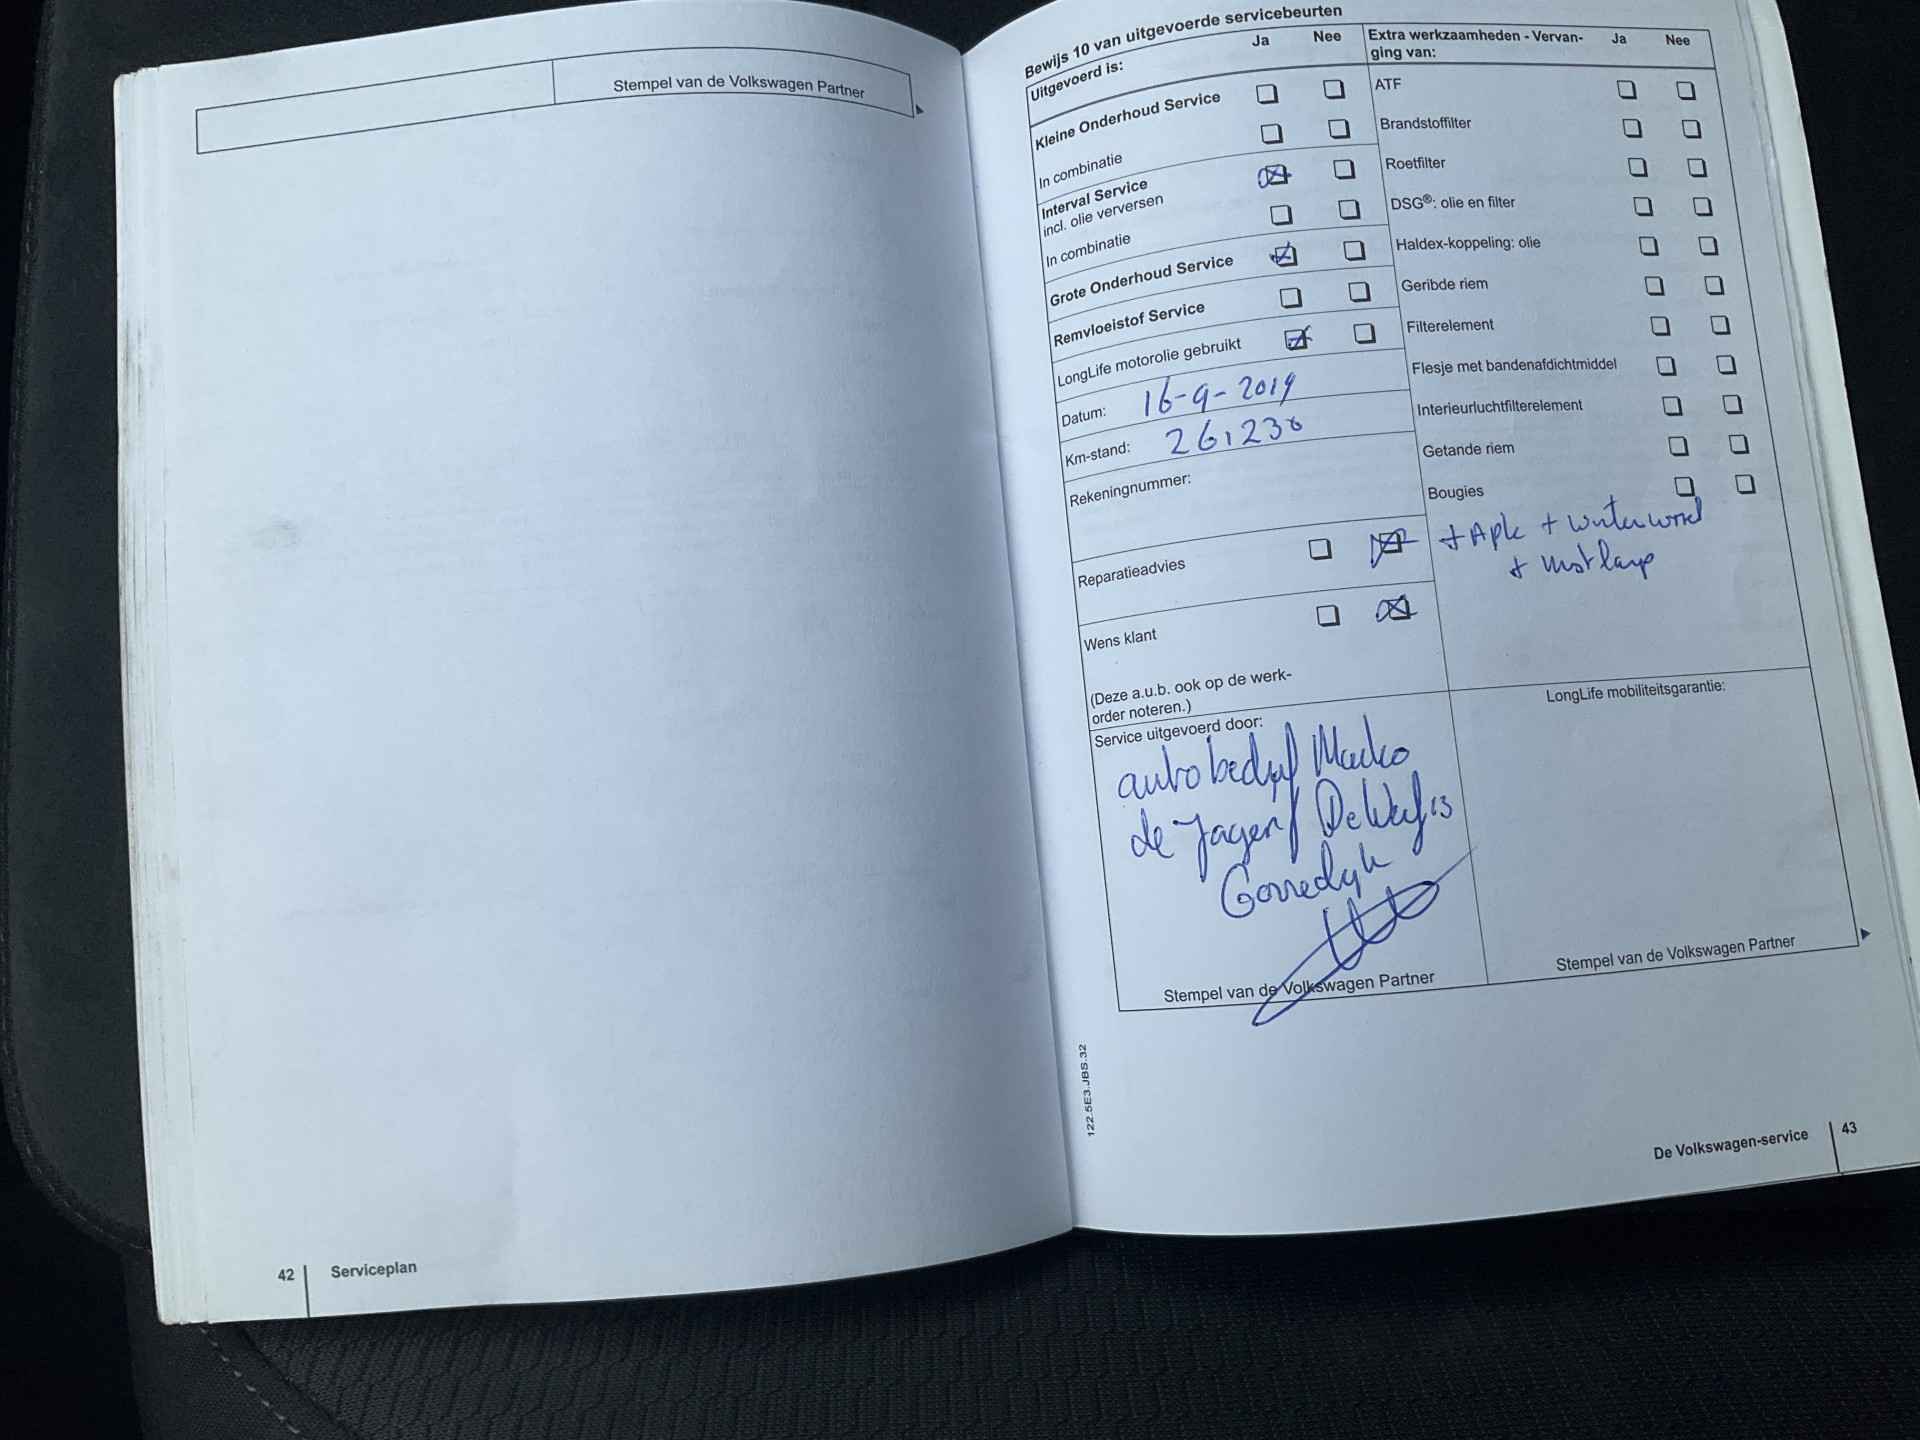 Stempel van de Volkswagen Partner
42 Serviceplan
Bewijs 10 van uitgevoerde servicebeurten
Uitgevoerd is: Ja Nee
Kleine Onderhoud Service
In combinatie
Interval Service
incl. olie verversen
In combinatie
Grote Onderhoud Service
Remvloeistof Service
LongLife motorolie gebruikt
Datum: 16-9-2019
Km-stand: 261230
Rekeningnummer:
Reparatieadvies
Wens klant
(Deze a.u.b. ook op de werk-
order noteren.)
Extra werkzaamheden - Vervan- Ja Nee
ging van:
ATF
Brandstoffilter
Roetfilter
DSG®: olie en filter
Haldex-koppeling: olie
Geribde riem
Filterelement
Flesje met bandenafdichtmiddel
Interieurluchtfilterelement
Getande riem
Bougies
+ Apk +
+ mistlamp
Service uitgevoerd door:
autobedrijf
de Jager / De Werf 13
Gorredijk
Stempel van de Volkswagen Partner
LongLife mobiliteitsgarantie:
Stempel van de Volkswagen Partner
122.5E3.JBS.32
De Volkswagen-service 43